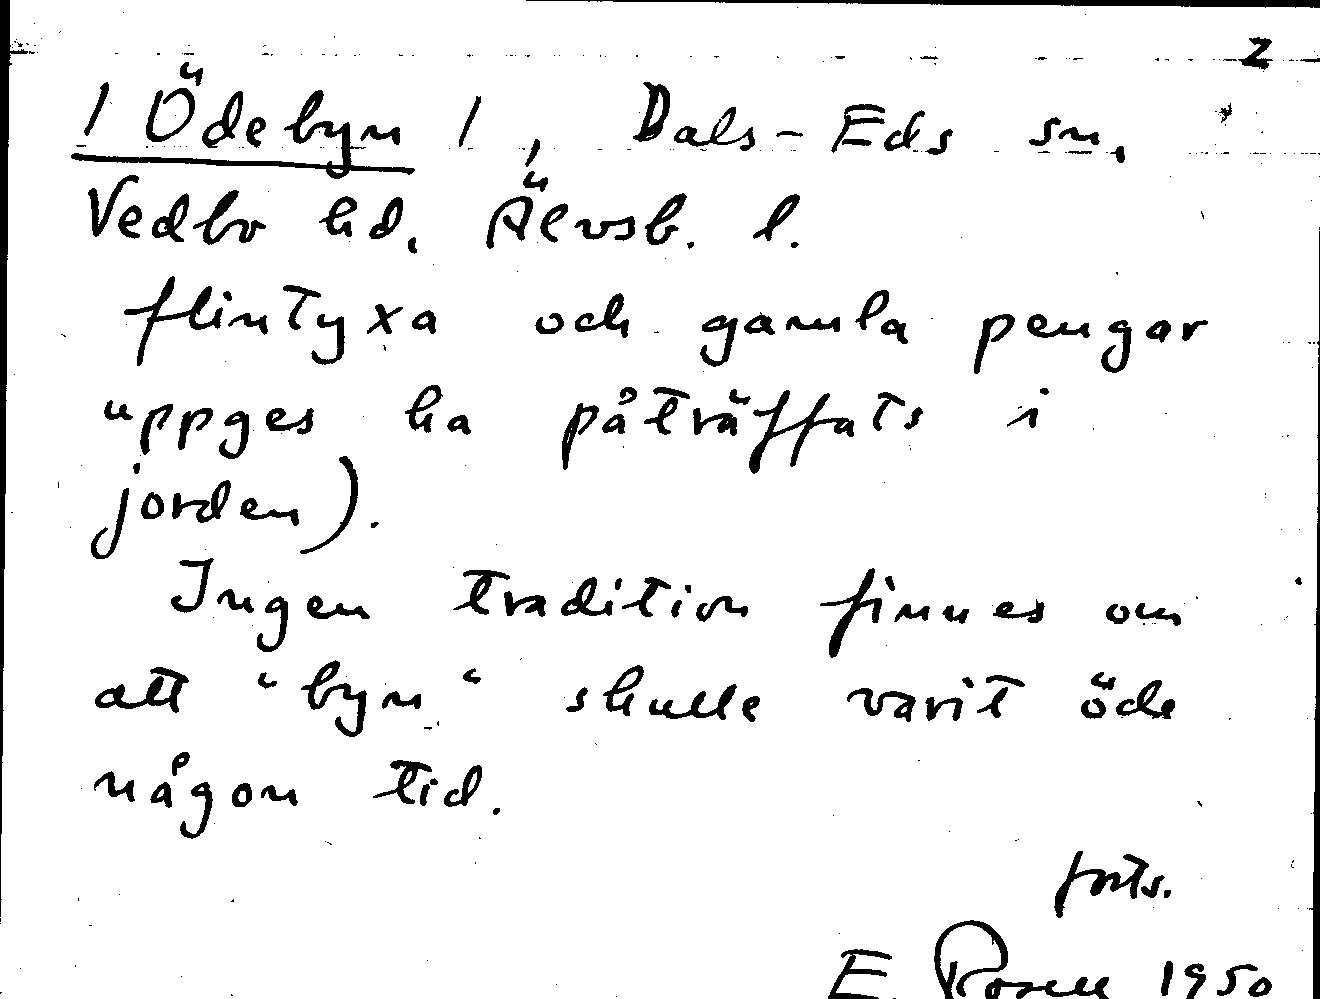 2
/ Ödebyn /, Dals-Eds sn,
Vedbo hd, Älvsb. l.
flintyxa och gamla pengar
uppges ha påträffats i
jorden).
Ingen tradition finnes om
att "byn" skulle varit öde
någon tid.
forts.
E Rosell 1950